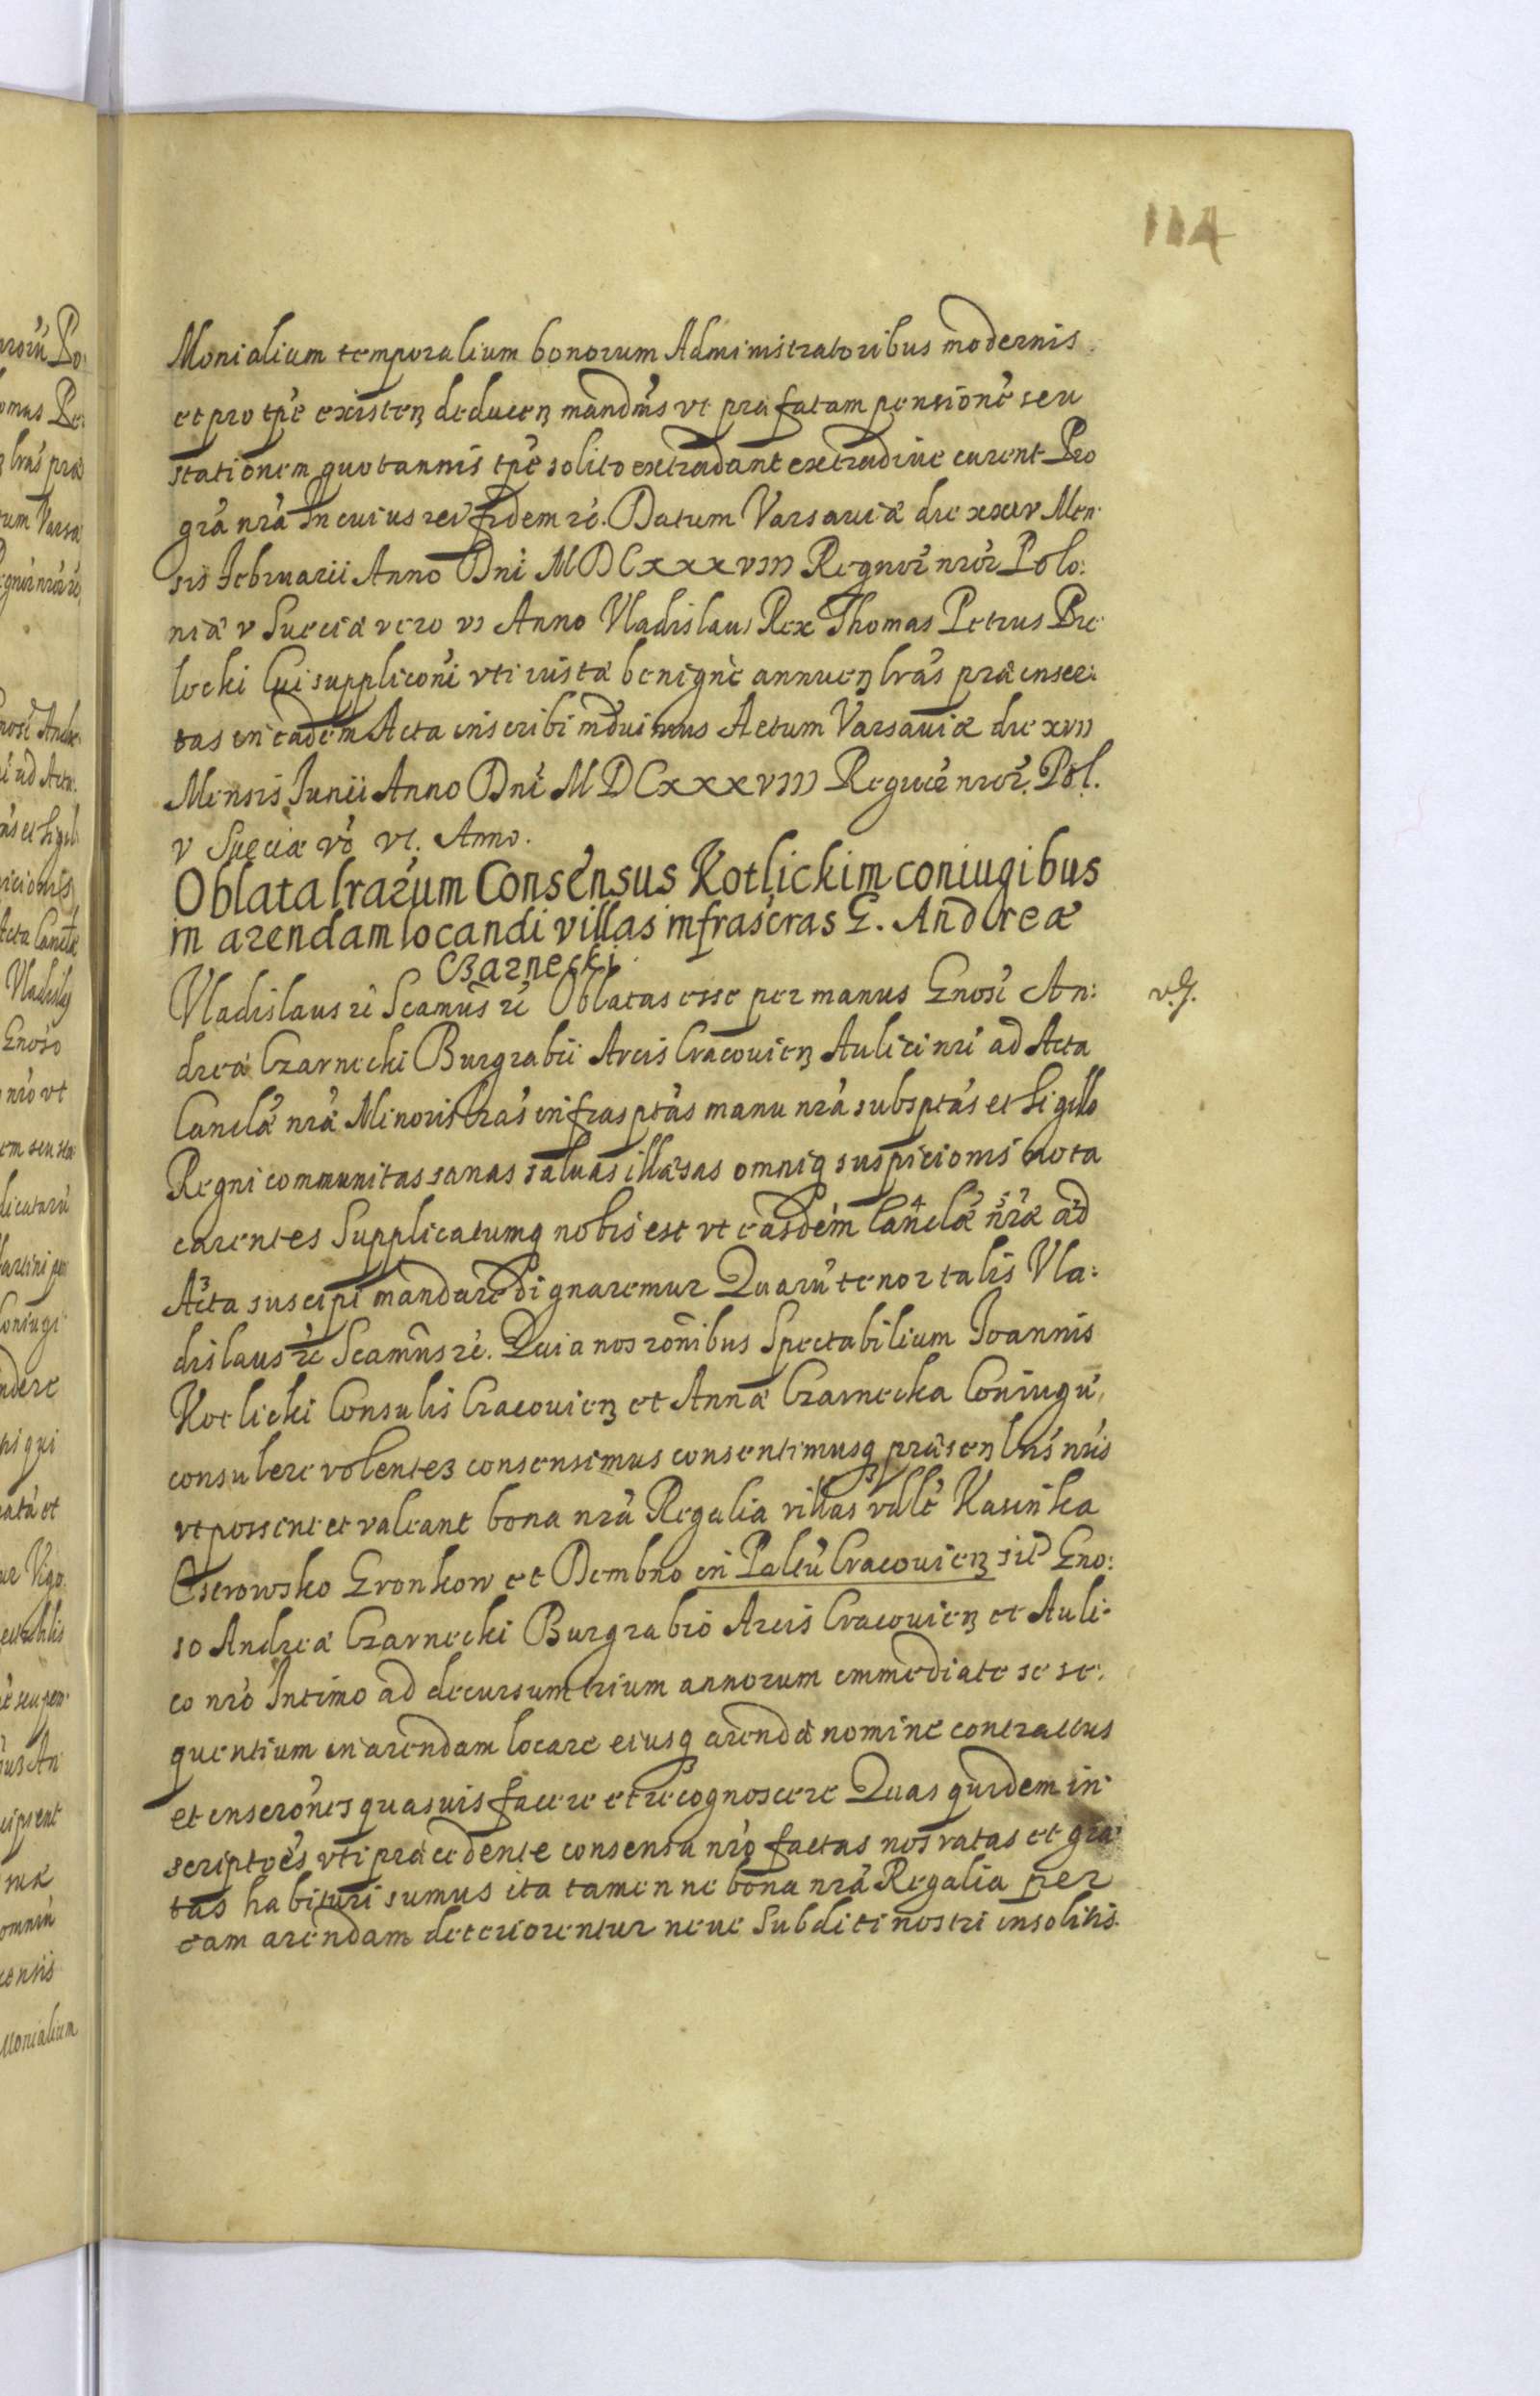 114
Monialium temporalium bonorum Administratoribus modernis
et pro tpe existen deducen mandms vt præfatam pensione seu
stationem quotannis tpe solito extradant extradive curent Pro
gra nra In cuius rei fidem re. Datum Varsaviæ die xxiv Men
sis Februarii Anno Dni MDCxxxviii Regnor nror Polo:
niæ v Sueciæ vero vi Anno Vladislaus Rex Thomas Petrus Bie
locki Cui suppliconi vti iustæ benigne annuen lras præinser:
tas in eadem Acta inscribi mduimus Actum Varsaviæ die xvii
Mensis Junii Anno Dni MDCxxxviii Regnor nror. Pol.
v Sueciæ vo vi. Anno.
Oblata lrarum Consensus Kotlickim coniugibus
in arendam locandi villas infrascras G. Andreæ
Czarnecki.
Vladislaus re Scamus re Oblatas esse per manus Gnosi An:
dreæ Czarnecki Burgrabii Arcis Cracovien Aulici nri ad Acta
Canclæ nræ Minoris lras infrasptas manu nra subsptas et Sigillo
Regni communitas sanas saluas illæsas omniq suspicionis nota
carentes Supplicatumq nobis est vt easdem Canclæ nræ ad
Acta suscipi mandare dignaremur Quaru tenor talis Vla:
dislaus re Scamus re. Quia nos ronibus Spectabilium Joannis
Kotlicki Consulis Cracovien et Annæ Czarnecka Coniugu,
consulere volentes consensimus consentimusq præsen lris nris
vt possint et valeant bona nra Regalia villas vdlt Kasinka
Olszowsko Gronkow et Dembno in Paltu Cracovien sit Gno:
so Andreæ Czarnecki Burgrabio Arcis Cracovien et Auli
co nro Intimo ad decursum trium annorum immediate se se,
quentium in arendam locare eiusq arendæ nomine contractus
et inscrones quasuis facere et recognoscere Quas quidem in
scriptoes vti præcedente consensu nro factas nos ratas et gra
tas habituri sumus ita tamen ne bona nra Regalia per
eam arendam deteriorentur neue Subditi nostri insolitis